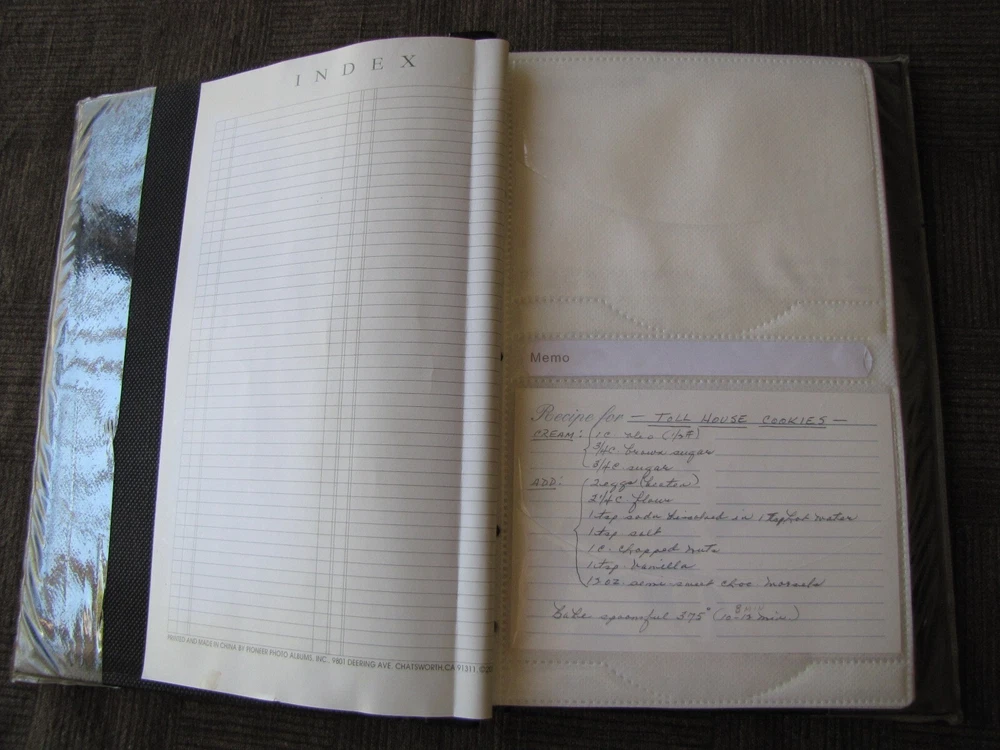 INDEX
PRINTED AND MADE IN CHINA BY PIONEER PHOTO ALBUMS, INC. 9801 DEERING AVE. CHATSWORTH, CA 91311. ©20
Memo
Recipe for — TOLL HOUSE COOKIES —
CREAM: 1 C. oleo (1/2 #)
3/4 C. brown sugar
3/4 C. sugar
ADD: 2 eggs (beaten)
2 1/4 C flour
1 tsp soda dissolved in 1 tsp hot water
1 tsp salt
1 C. chopped nuts
1 tsp. vanilla
oz. semi-sweet choc. morsels
Bake spoonful 375° (10-12 min)
8 min